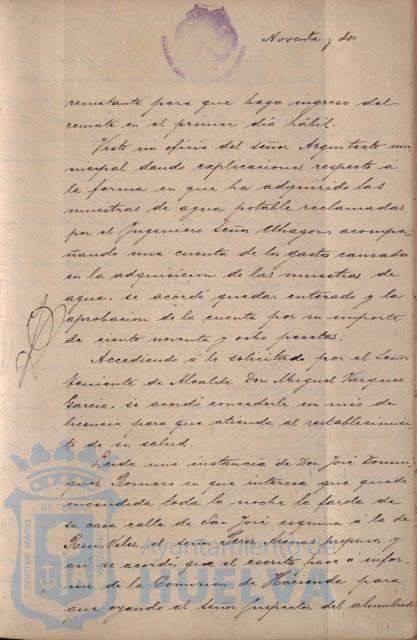 Noventa y dos
rematante para que haga ingreso del
remate en el primer dia hábil.
Visto un oficio del Señor Arquitecto mu-
nicipal dando esplicaciones respecto á
la forma en que ha adquirido las
muestras de agua potable reclamadas
por el Ingeniero Señor Uhagon, acompa-
ñando una cuenta de los gastos causados
en la adquisicion de las muestras de
agua, se acordó quedar enterado y la
aprobacion de la cuenta por su importe
de ciento noventa y ocho pesetas.
Accediendo á lo solicitado por el Señor
Teniente de Alcalde Don Miguel Vazquez
Garcia, se acordó concederle un mes de
licencia para que atienda al restablecimien-
to de su salud.
Leida una instancia de Don José Domin-
guez Romero en que interesa que quede
encendida toda la noche la farola de
su casa calle de San José esquina á la de
Rui Velez, el señor Perez propuso, y
así se acordó, que el escrito pase á infor-
me de la Comision de Hacienda para
que oyendo al señor Inspector del alumbrado
PORTUS MARIS ET
Ayuntamiento de
HUELVA